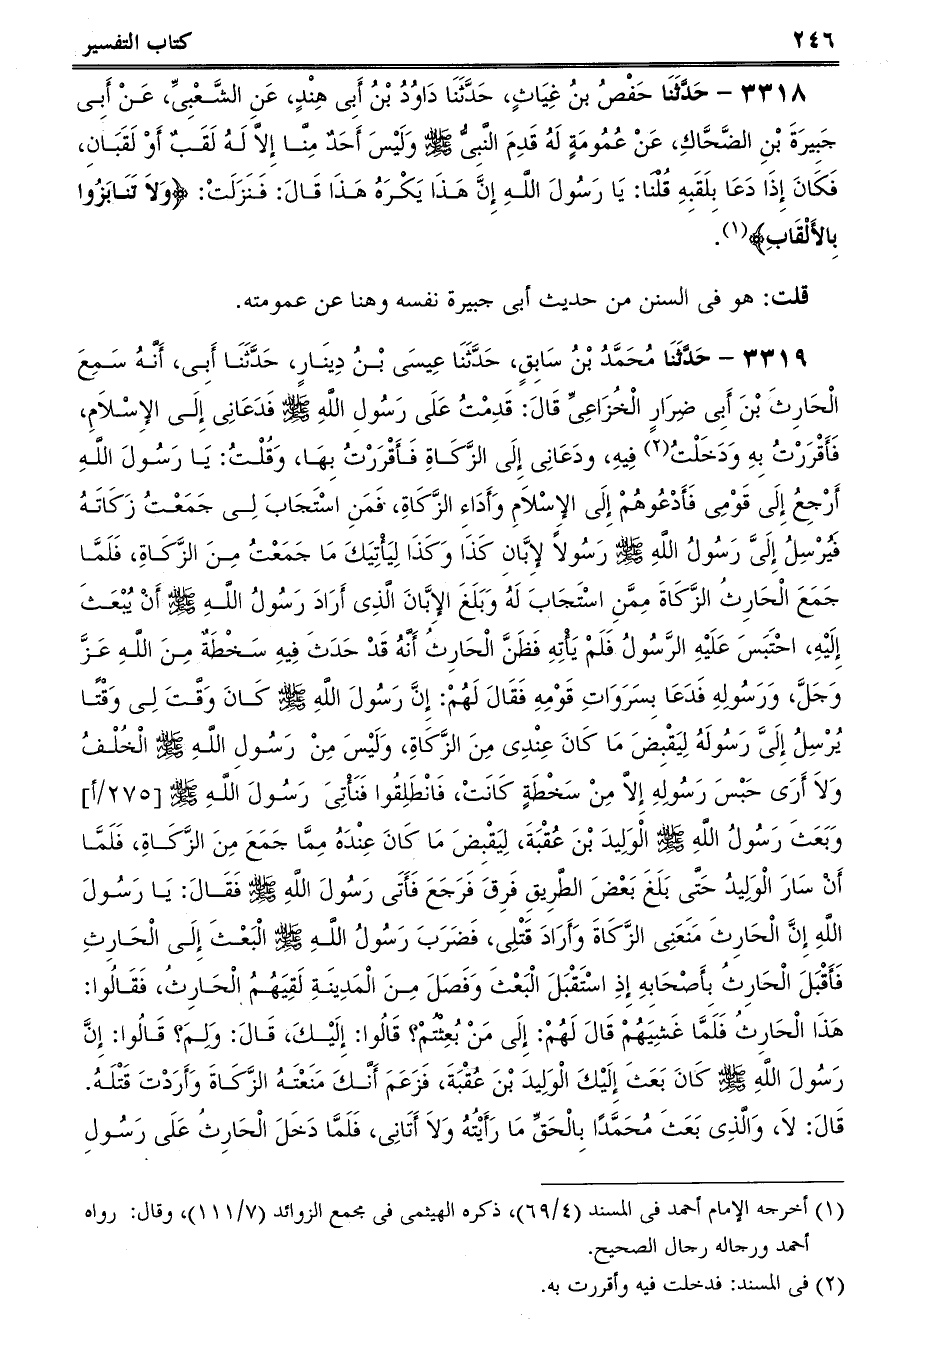 ٢٤٦ كتاب التفسير
٣٣١٨ - حَدَّثَنَا حَفْصُ بنُ غِيَاثٍ، حَدَّثَنَا دَاوُدُ بْنُ أَبِى هِنْدٍ، عَنِ الشَّعْبِىِّ، عَنْ أَبِى
جَبِيرَةَ بْنِ الضَّحَّاكِ، عَنْ عُمُومَةٍ لَهُ قَدِمَ النَّبِىُّ ﷺ وَلَيْسَ أَحَدٌ مِنَّا إِلاَّ لَهُ لَقَبٌ أَوْ لَقَبَانِ،
فَكَانَ إِذَا دَعَا بِلَقَبِهِ قُلْنَا: يَا رَسُولَ اللهِ إِنَّ هَذَا يَكْرَهُ هَذَا قَالَ: فَنَزَلَتْ: ﴿وَلاَ تَنَابَزُوا
بِالأَلْقَابِ﴾(١).
قلت: هو فى السنن من حديث أبى جبيرة نفسه وهنا عن عمومته.
٣٣١٩ - حَدَّثَنَا مُحَمَّدُ بْنُ سَابِقٍ، حَدَّثَنَا عِيسَى بْنُ دِينَارٍ، حَدَّثَنَا أَبِى، أَنَّهُ سَمِعَ
الْحَارِثَ بْنَ أَبِى ضِرَارٍ الْخُزَاعِىِّ قَالَ: قَدِمْتُ عَلَى رَسُولِ اللهِ ﷺ فَدَعَانِى إِلَى الإِسْلاَمِ،
فَأَقْرَرْتُ بِهِ وَدَخَلْتُ(٢) فِيهِ، ودَعَانِى إِلَى الزَّكَاةِ فَأَقْرَرْتُ بِهَا، وَقُلْتُ: يَا رَسُولَ اللهِ
أَرْجِعُ إِلَى قَوْمِى فَأَدْعُوهُمْ إِلَى الإِسْلاَمِ وَأَدَاءِ الزَّكَاةِ، فَمَنِ اسْتَجَابَ لِى جَمَعْتُ زَكَاتَهُ
فَيُرْسِلُ إِلَىَّ رَسُولُ اللهِ ﷺ رَسُولاً لإِبَّانِ كَذَا وَكَذَا لِيَأْتِيَكَ مَا جَمَعْتُ مِنَ الزَّكَاةِ، فَلَمَّا
جَمَعَ الْحَارِثُ الزَّكَاةَ مِمَّنِ اسْتَجَابَ لَهُ وَبَلَغَ الإِبَّانَ الَّذِى أَرَادَ رَسُولُ اللهِ ﷺ أَنْ يُبْعَثَ
إِلَيْهِ، احْتَبَسَ عَلَيْهِ الرَّسُولُ فَلَمْ يَأْتِهِ فَظَنَّ الْحَارِثُ أَنَّهُ قَدْ حَدَثَ فِيهِ سَخْطَةٌ مِنَ اللهِ عَزَّ
وَجَلَّ، وَرَسُولِهِ فَدَعَا بِسَرَوَاتِ قَوْمِهِ فَقَالَ لَهُمْ: إِنَّ رَسُولَ اللهِ ﷺ كَانَ وَقَّتَ لِى وَقْتًا
يُرْسِلُ إِلَىَّ رَسُولَهُ لِيَقْبِضَ مَا كَانَ عِنْدِى مِنَ الزَّكَاةِ، وَلَيْسَ مِنْ رَسُولِ اللهِ ﷺ الْخُلْفُ
وَلاَ أَرَى حَبْسَ رَسُولِهِ إِلاَّ مِنْ سَخْطَةٍ كَانَتْ، فَانْطَلِقُوا فَنَأْتِىَ رَسُولَ اللهِ ﷺ [٢٧٥/أ]
وَبَعَثَ رَسُولُ اللهِ ﷺ الْوَلِيدَ بْنَ عُقْبَةَ، لِيَقْبِضَ مَا كَانَ عِنْدَهُ مِمَّا جَمَعَ مِنَ الزَّكَاةِ، فَلَمَّا
أَنْ سَارَ الْوَلِيدُ حَتَّى بَلَغَ بَعْضَ الطَّرِيقِ فَرِقَ فَرَجَعَ فَأَتَى رَسُولَ اللهِ ﷺ فَقَالَ: يَا رَسُولَ
اللهِ إِنَّ الْحَارِثَ مَنَعَنِى الزَّكَاةَ وَأَرَادَ قَتْلِى، فَضَرَبَ رَسُولُ اللهِ ﷺ الْبَعْثَ إِلَى الْحَارِثِ
فَأَقْبَلَ الْحَارِثُ بِأَصْحَابِهِ إِذِ اسْتَقْبَلَ الْبَعْثَ وَفَصَلَ مِنَ الْمَدِينَةِ لَقِيَهُمُ الْحَارِثُ، فَقَالُوا:
هَذَا الْحَارِثُ فَلَمَّا غَشِيَهُمْ قَالَ لَهُمْ: إِلَى مَنْ بُعِثْتُمْ؟ قَالُوا: إِلَيْكَ، قَالَ: وَلِمَ؟ قَالُوا: إِنَّ
رَسُولَ اللهِ ﷺ كَانَ بَعَثَ إِلَيْكَ الْوَلِيدَ بْنَ عُقْبَةَ، فَزَعَمَ أَنَّكَ مَنَعْتَهُ الزَّكَاةَ وَأَرَدْتَ قَتْلَهُ.
قَالَ: لاَ، وَالَّذِى بَعَثَ مُحَمَّدًا بِالْحَقِّ مَا رَأَيْتُهُ وَلاَ أَتَانِى، فَلَمَّا دَخَلَ الْحَارِثُ عَلَى رَسُولِ
(١) أخرجه الإمام أحمد فى المسند (٦٩/٤)، ذكره الهيثمى فى مجمع الزوائد (١١١/٧)، وقال: رواه
أحمد ورجاله رجال الصحيح.
(٢) فى المسند: فدخلت فيه وأقررت به.